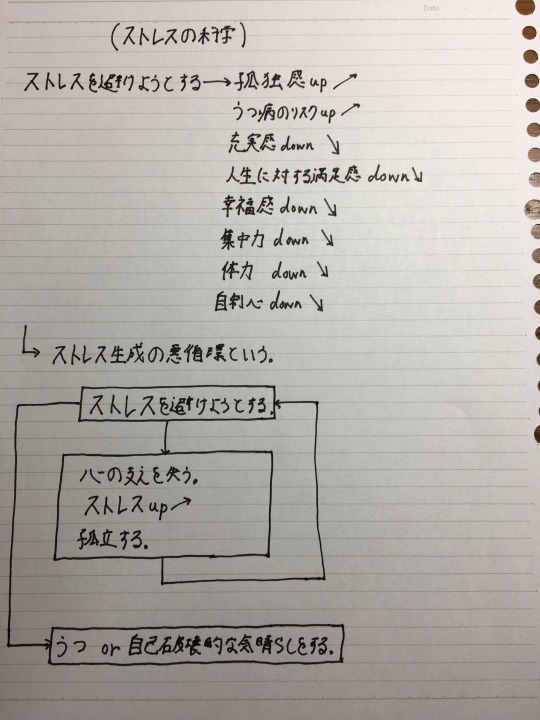 Date
(ストレスの科学)
ストレスを避けようとする→孤独感up↗
うつ病のリスクup↗
充実感down↘
人生に対する満足感down↘
幸福感down↘
集中力down↘
体力down↘
自制心down↘
↳ストレス生成の悪循環という。
ストレスを避けようとする。
心の支えを失う。
ストレスup↗
孤立する。
うつ or 自己破壊的な気晴らしをする。